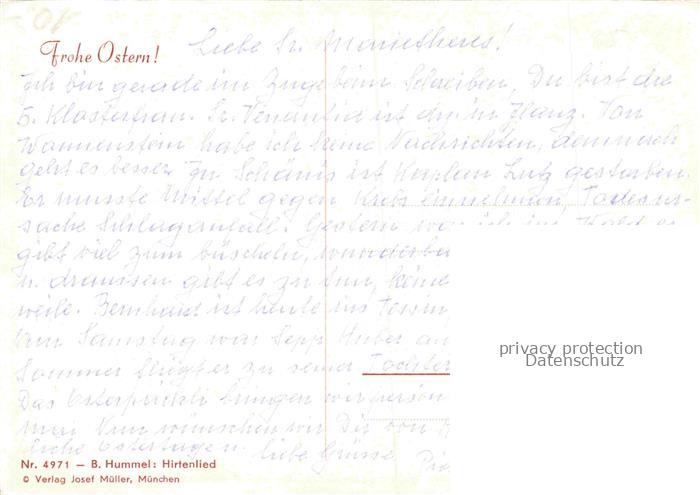 Frohe Ostern!
Liebe Sr. Marietheres!
Ich bin gerade im Zuge beim Schreiben, Du bist die
5. Klosterfrau. Sr. Venantia ist in Ilanz. Von
Wannenstein habe ich keine Nachrichten, demnach
geht es besser. In Schänis ist Kaplan Lutz gestorben.
Er musste Mittel gegen Krebs einnehmen, Todesur-
sache Schlaganfall. Gestern war ich im Wald es
gibt viel zum büscheln, wunderba
u. draussen gibt es zu tun, keine
weile. Bernhard ist heute ins Tessin,
Am Samstag war Sepp Huber
Sommer fliegt er zu seiner Tochter
Das bringen wir persön
Nun wünschen wir Dir von
liche Ostertage u. liebe Grüsse
privacy protection
Datenschutz
Nr. 4971 — B. Hummel: Hirtenlied
© Verlag Josef Müller, München